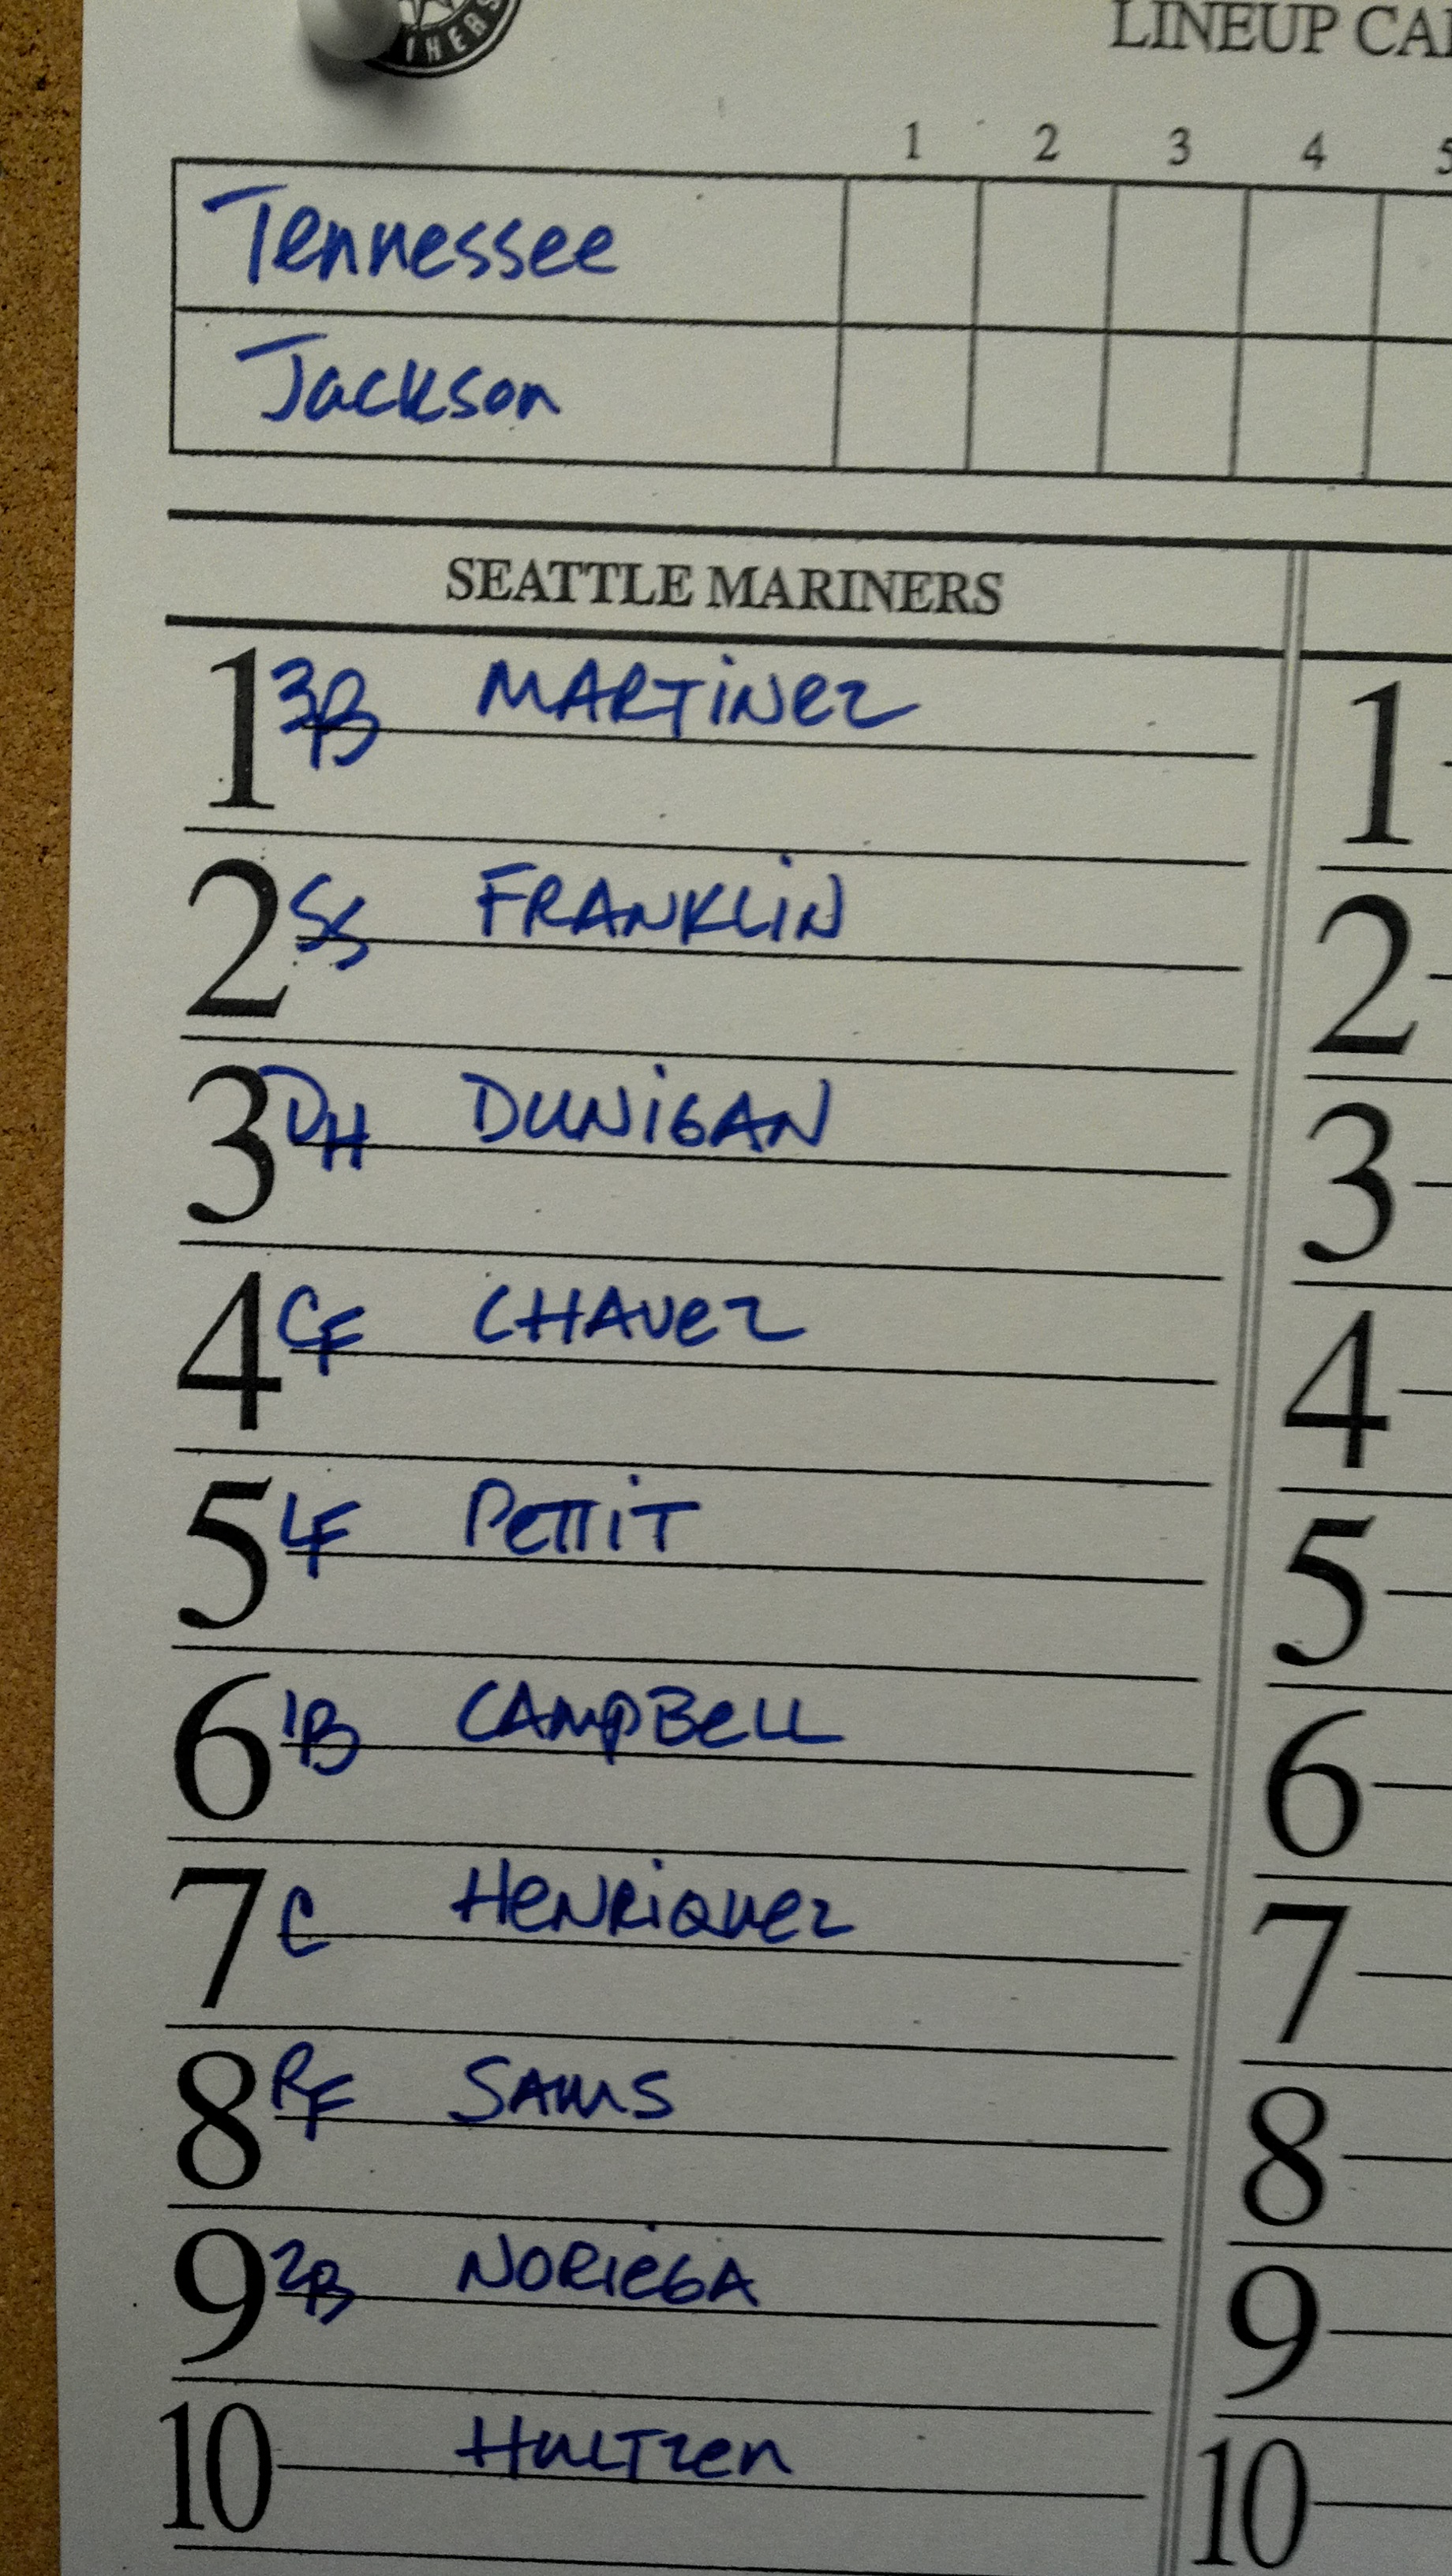 LINEUP
1 2 3 4
Tennessee
Jackson
SEATTLE MARINERS
1 3B MARTINEZ 1
2 SS FRANKLIN 2
3 DH DUNIGAN 3
4 CF CHAVEZ 4
5 LF PETTIT 5
6 1B CAMPBELL 6
7 C HENRIQUEZ 7
8 RF SAMS 8
9 2B NORIEGA 9
10 HULTZEN 10